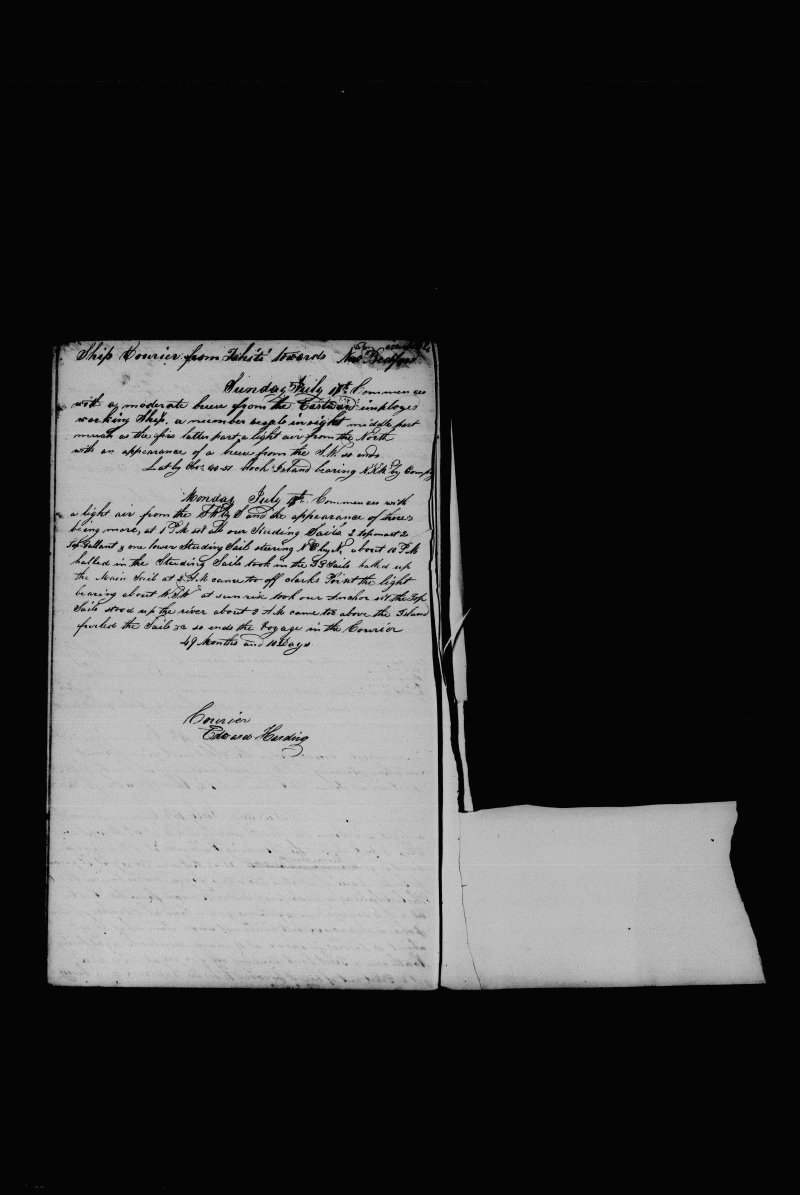 Ship Courier from Tahiti towards New Bedford
Sunday July 17th Commences
with a moderate breeze from the Eastward imployed
working Ship. a number segale in sight middle part
much as the first latter part a light air from the North
with an appearance of a breeze from the S.W so ends
Lat by Obs 40-51 Block Island bearing by Comp
Monday July 18th Commences with
a light air from the and the appearance of there
being more, at 1 P.M set all our Studing Sails 2 topmast 2
Top Gallant & one lower Studing Sail stering N E by N, about 10 P.M
halled in the Studing Sails took in the T G Sails halled up
the Main Sail at 2 A.M came too off clarks Point the light
bearing about at sun rise took our Anchor set the Top
Sails stood up the river about 8 A.M came too above the Island
furled the Sails &c so ends the Voyage in the Courier
49 Months and 10 Days
Courier
Edward Harding